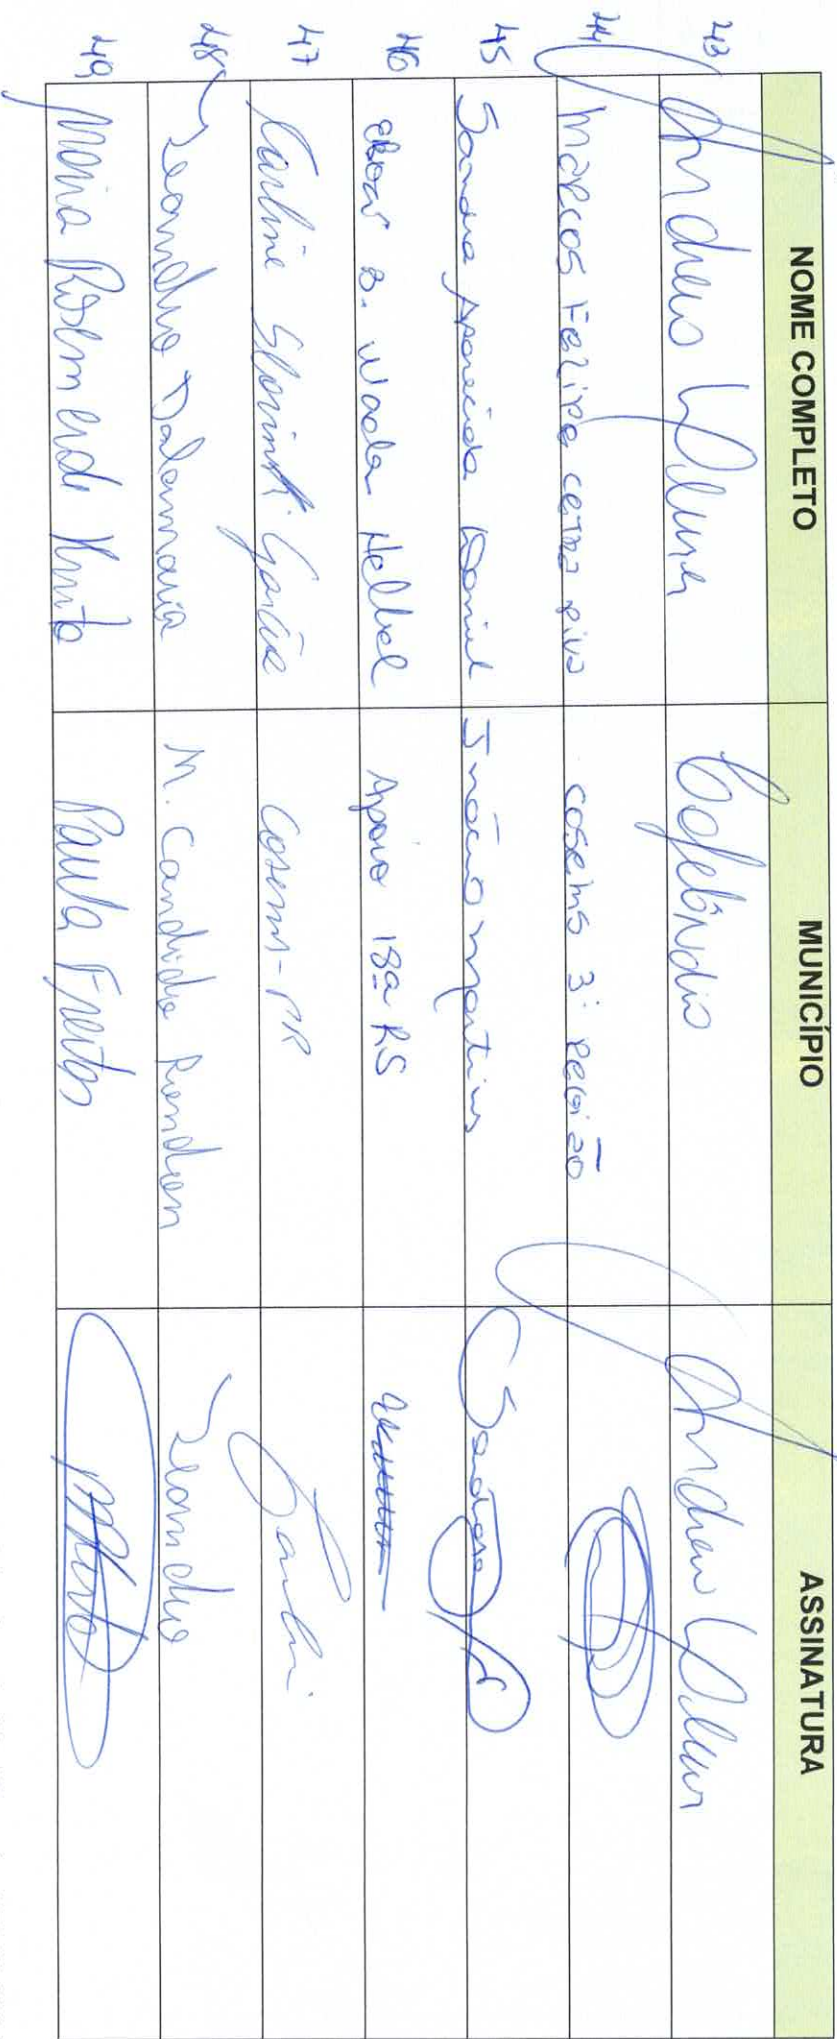 NOME COMPLETO MUNICÍPIO ASSINATURA
43 Andreia Cafelândia Andreia
44 Marcos Felipe cosems 3ª Região
45 Sandra Aparecida Daniel Inácio Martins Sandra
46 B. Wada Helbel Apoio 18ª RS
47 Carline Slovinski Garcia Cosems-PR
48 Leandro Dalamaria M. Candido Rondon Leandro
49 Maria Paula Freitas